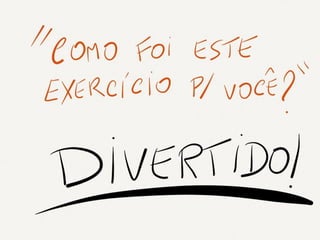 "COMO FOI ESTE
EXERCÍCIO P/ VOCÊ?"
DIVERTIDO!